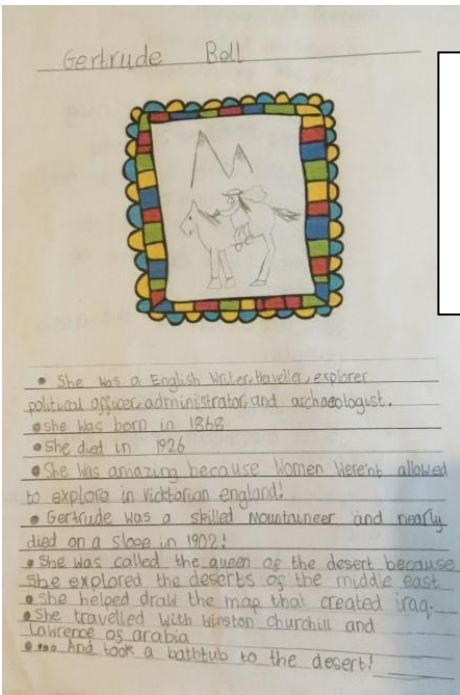 Gertrude Bell
• She was a English writer, traveller, explorer
political officer, administrator, and archaeologist.
• she was born in 1868
• She died in 1926
• She was amazing because women weren't allowed
to explore in vicktorian england!
• Gertrude was a skilled mountaineer and nearly
died on a slope in 1902!
• She was called the queen of the desert because
she explored the deserts of the middle east
• she helped draw the map that created iraq.
• She travelled with winston churchill and
lawrence of arabia
• ... And took a bathtub to the desert!